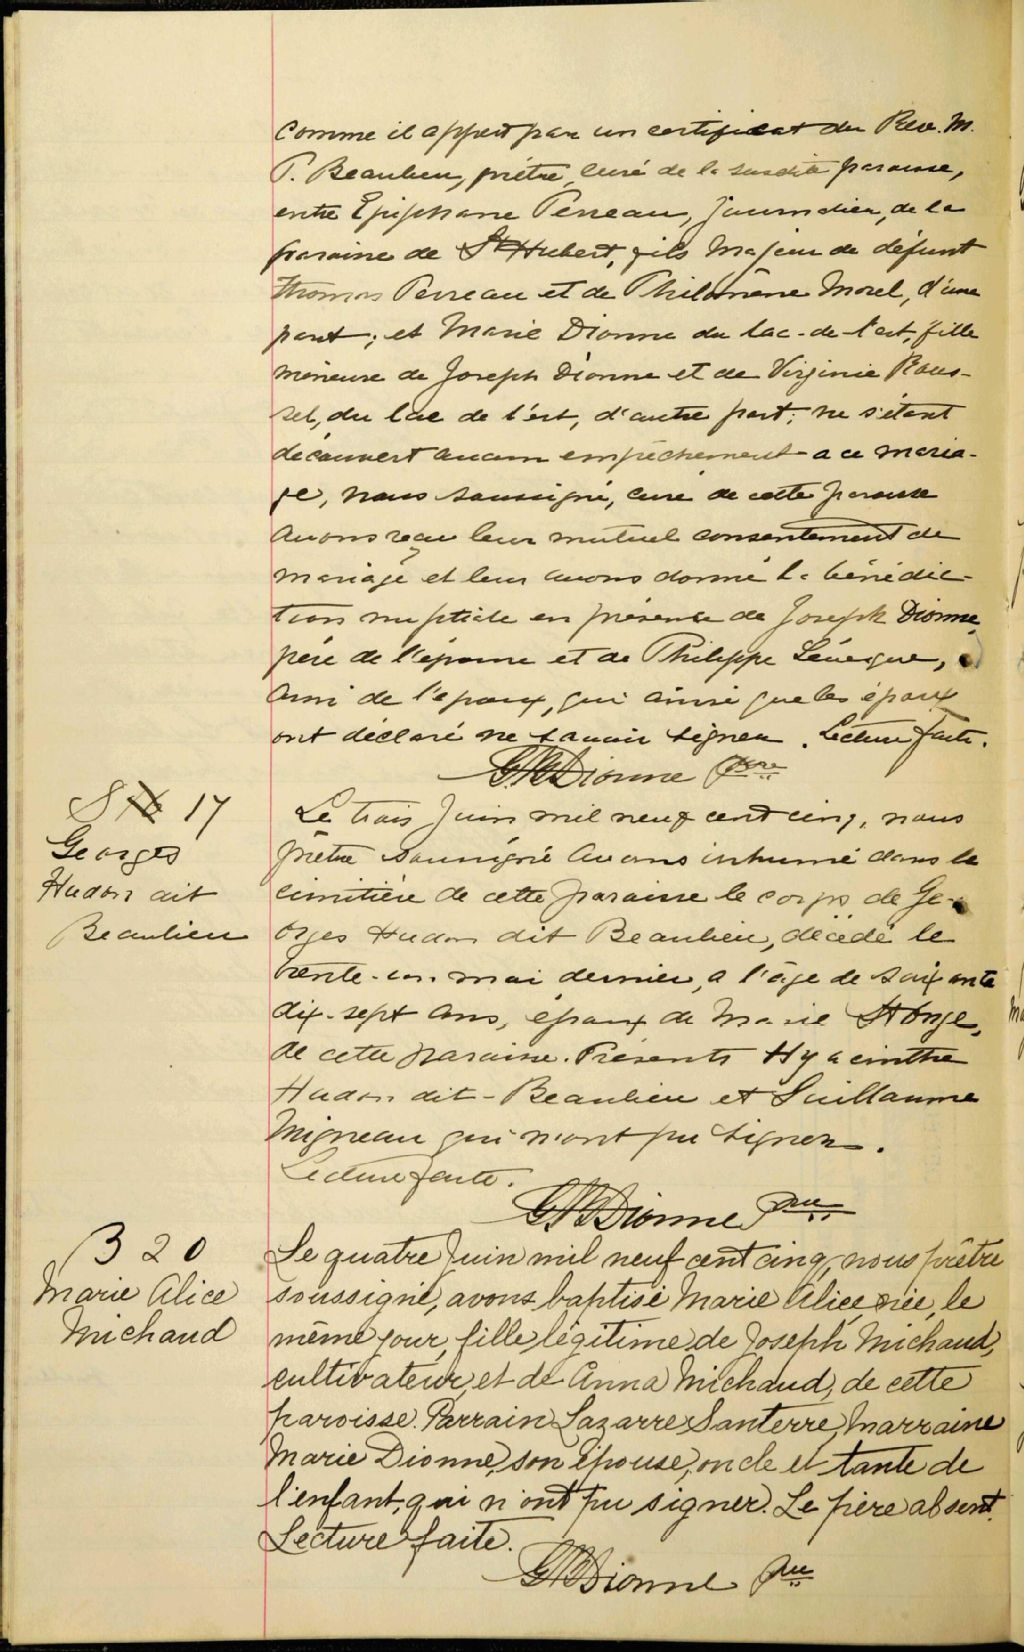 comme il appert par un certificat du Rev. M.
P. Beaulieu, prêtre, curé de la susdite paroisse,
entre Epiphane Perreau, journalier, de la
paroisse de St Hubert, fils majeur de défunt
Thomas Perreau et de Philomène Morel, d'une
part; et Marie Dionne du lac-de-l'est, fille
mineure de Joseph Dionne et de Virginie Rous-
sel, du lac de l'est, d'autre part; ne s'étant
découvert aucun empêchement a ce maria-
ge, nous soussigné, curé de cette paroisse
avons reçu leur mutuel consentement de
mariage et leur avons donné la bénédic-
tion nuptiale en présence de Joseph Dionne,
père de l'épouse et de Philippe Lévesque,
ami de l'époux, qui ainsi que les époux
ont déclaré ne savoir signer. Lecture faite.
Dionne Ptre
S 17
Georges
Hudon dit
Beaulieu
Le trois Juin mil neuf cent cinq, nous
prêtre soussigné avons inhumé dans le
cimitière de cette paroisse le corps de Ge-
orges Hudon dit Beaulieu, décédé le
trente-un mai dernier, a l'âge de soixante
dix-sept ans, époux de Marie St Onge,
de cette paroisse. Présents Hyacinthe
Hudon dit-Beaulieu et Guillaume
Migneau qui n'ont pu signer.
Lecture faite.
Dionne Ptre
B 20
Marie Alice
Michaud
Le quatre Juin mil neuf cent cinq, nous prêtre
soussigné, avons baptisé Marie Alice, née, le
même jour, fille légitime de Joseph Michaud,
cultivateur, et de Anna Michaud, de cette
paroisse. Parrain Lazarre Santerre, Marraine
Marie Dionne, son épouse, oncle et tante de
l'enfant, qui n'ont pu signer. Le père absent.
Lecture faite.
Dionne Ptre